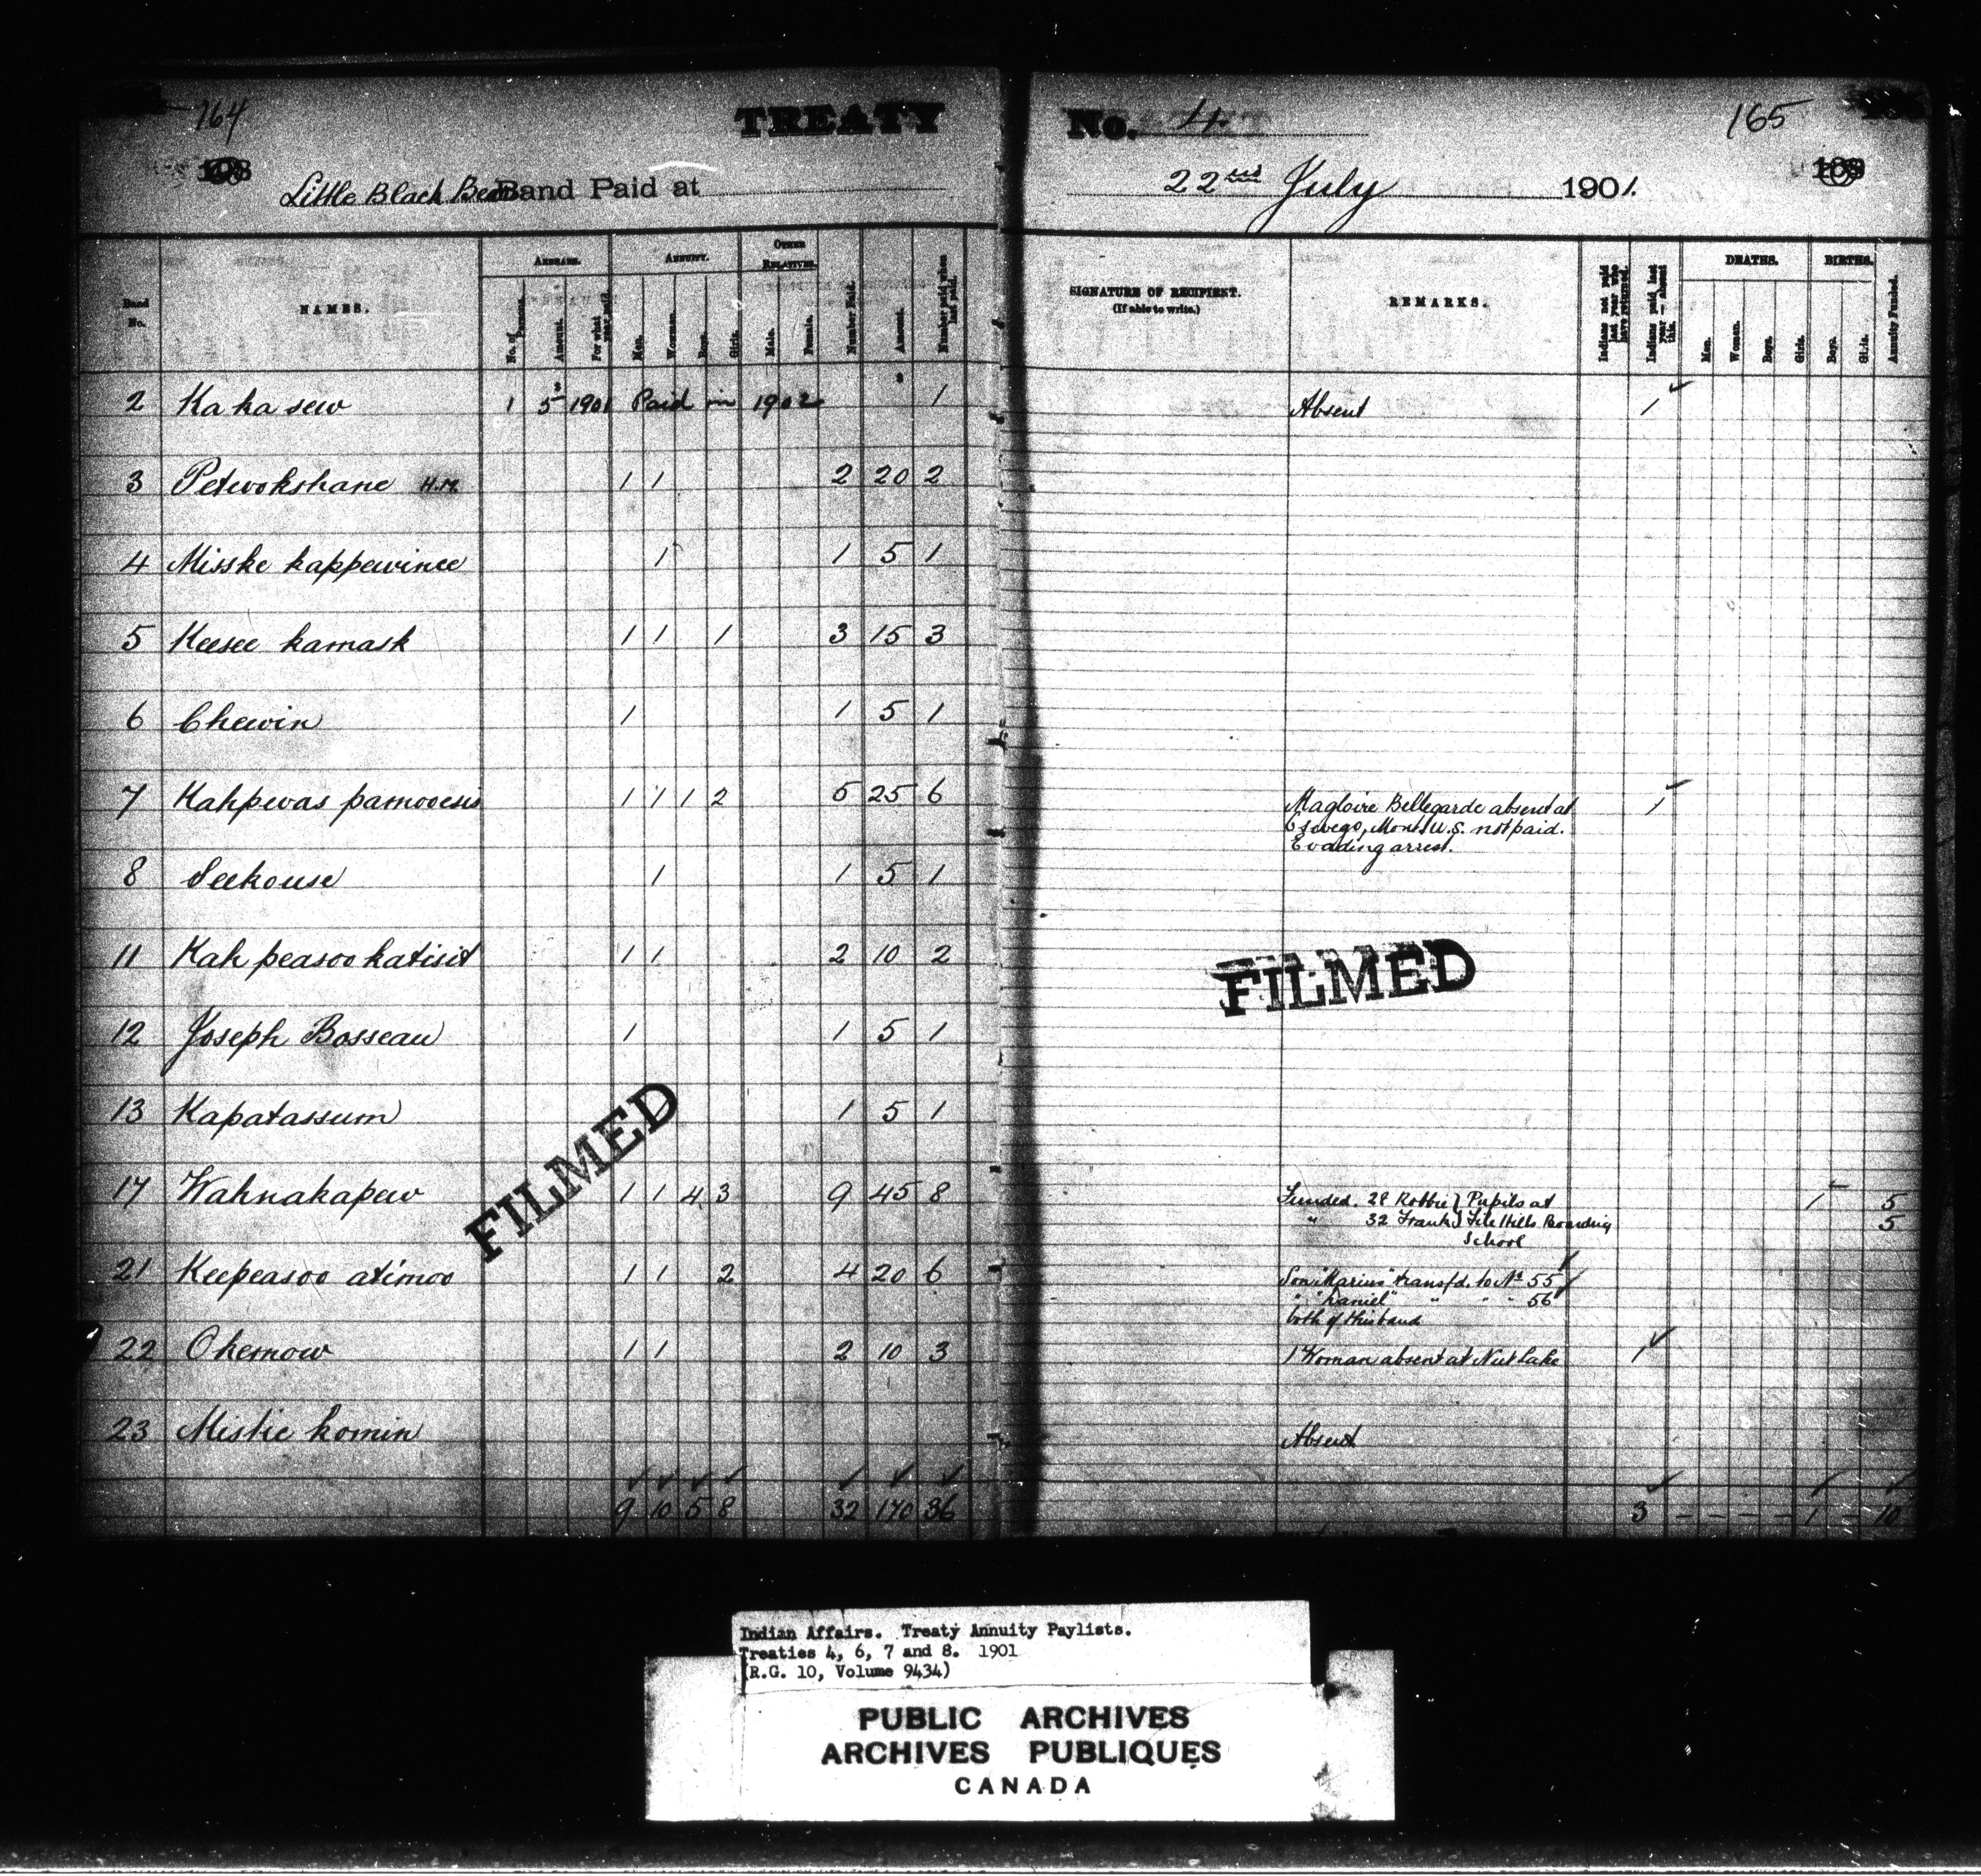 164 TREATY No. 4 165
Little Black Bear Band Paid at 22nd July 1901.
Band No. NAMES. ARREARS. ANNUITY. OTHER RELATIVES. Number Paid. Amount. Number paid when last paid.
No. of Persons. Amount. For what year paid. Men. Women. Boys. Girls. Male. Female.
SIGNATURE OF RECIPIENT. (If able to write.) REMARKS. Indians not paid last year who have returned. Indians paid last year — absent this. DEATHS. BIRTHS. Annuity Funded.
Men. Women. Boys. Girls. Boys. Girls.
2 Ka ka sew 1 5 1901 Paid in 1902 1 Absent 1
3 Petwokshane H.M. 1 1 2 20 2
4 Misske kappewinee 1 1 5 1
5 Keesee kamask 1 1 1 3 15 3
6 Chewin 1 1 5 1
7 Kahpewas pamooesis 1 1 1 2 5 25 6 Magloire Bellegarde absent at 1
Oswego, Mont. U.S. not paid.
Evading arrest.
8 Seekouse 1 1 5 1
11 Kah peasoo katisit 1 1 2 10 2
FILMED
12 Joseph Bosseau 1 1 5 1
13 Kapatassum 1 5 1
FILMED
17 Wahnakapew 1 1 4 3 9 45 8 Funded. 28 Robbie } Pupils at 1 5
" 32 Frank } File Hills Boarding 5
School
21 Keepeasoo atimoo 1 1 2 4 20 6 Son "Marius" transfd. to No 55
" "Daniel" " " " 56
both of this band
22 Okemow 1 1 2 10 3 1 Woman absent at Nut Lake 1
23 Mistie komin Absent
9 10 5 8 32 170 36 3 - - - - 1 - 10
Indian Affairs. Treaty Annuity Paylists.
Treaties 4, 6, 7 and 8. 1901
(R.G. 10, Volume 9434)
PUBLIC ARCHIVES
ARCHIVES PUBLIQUES
CANADA